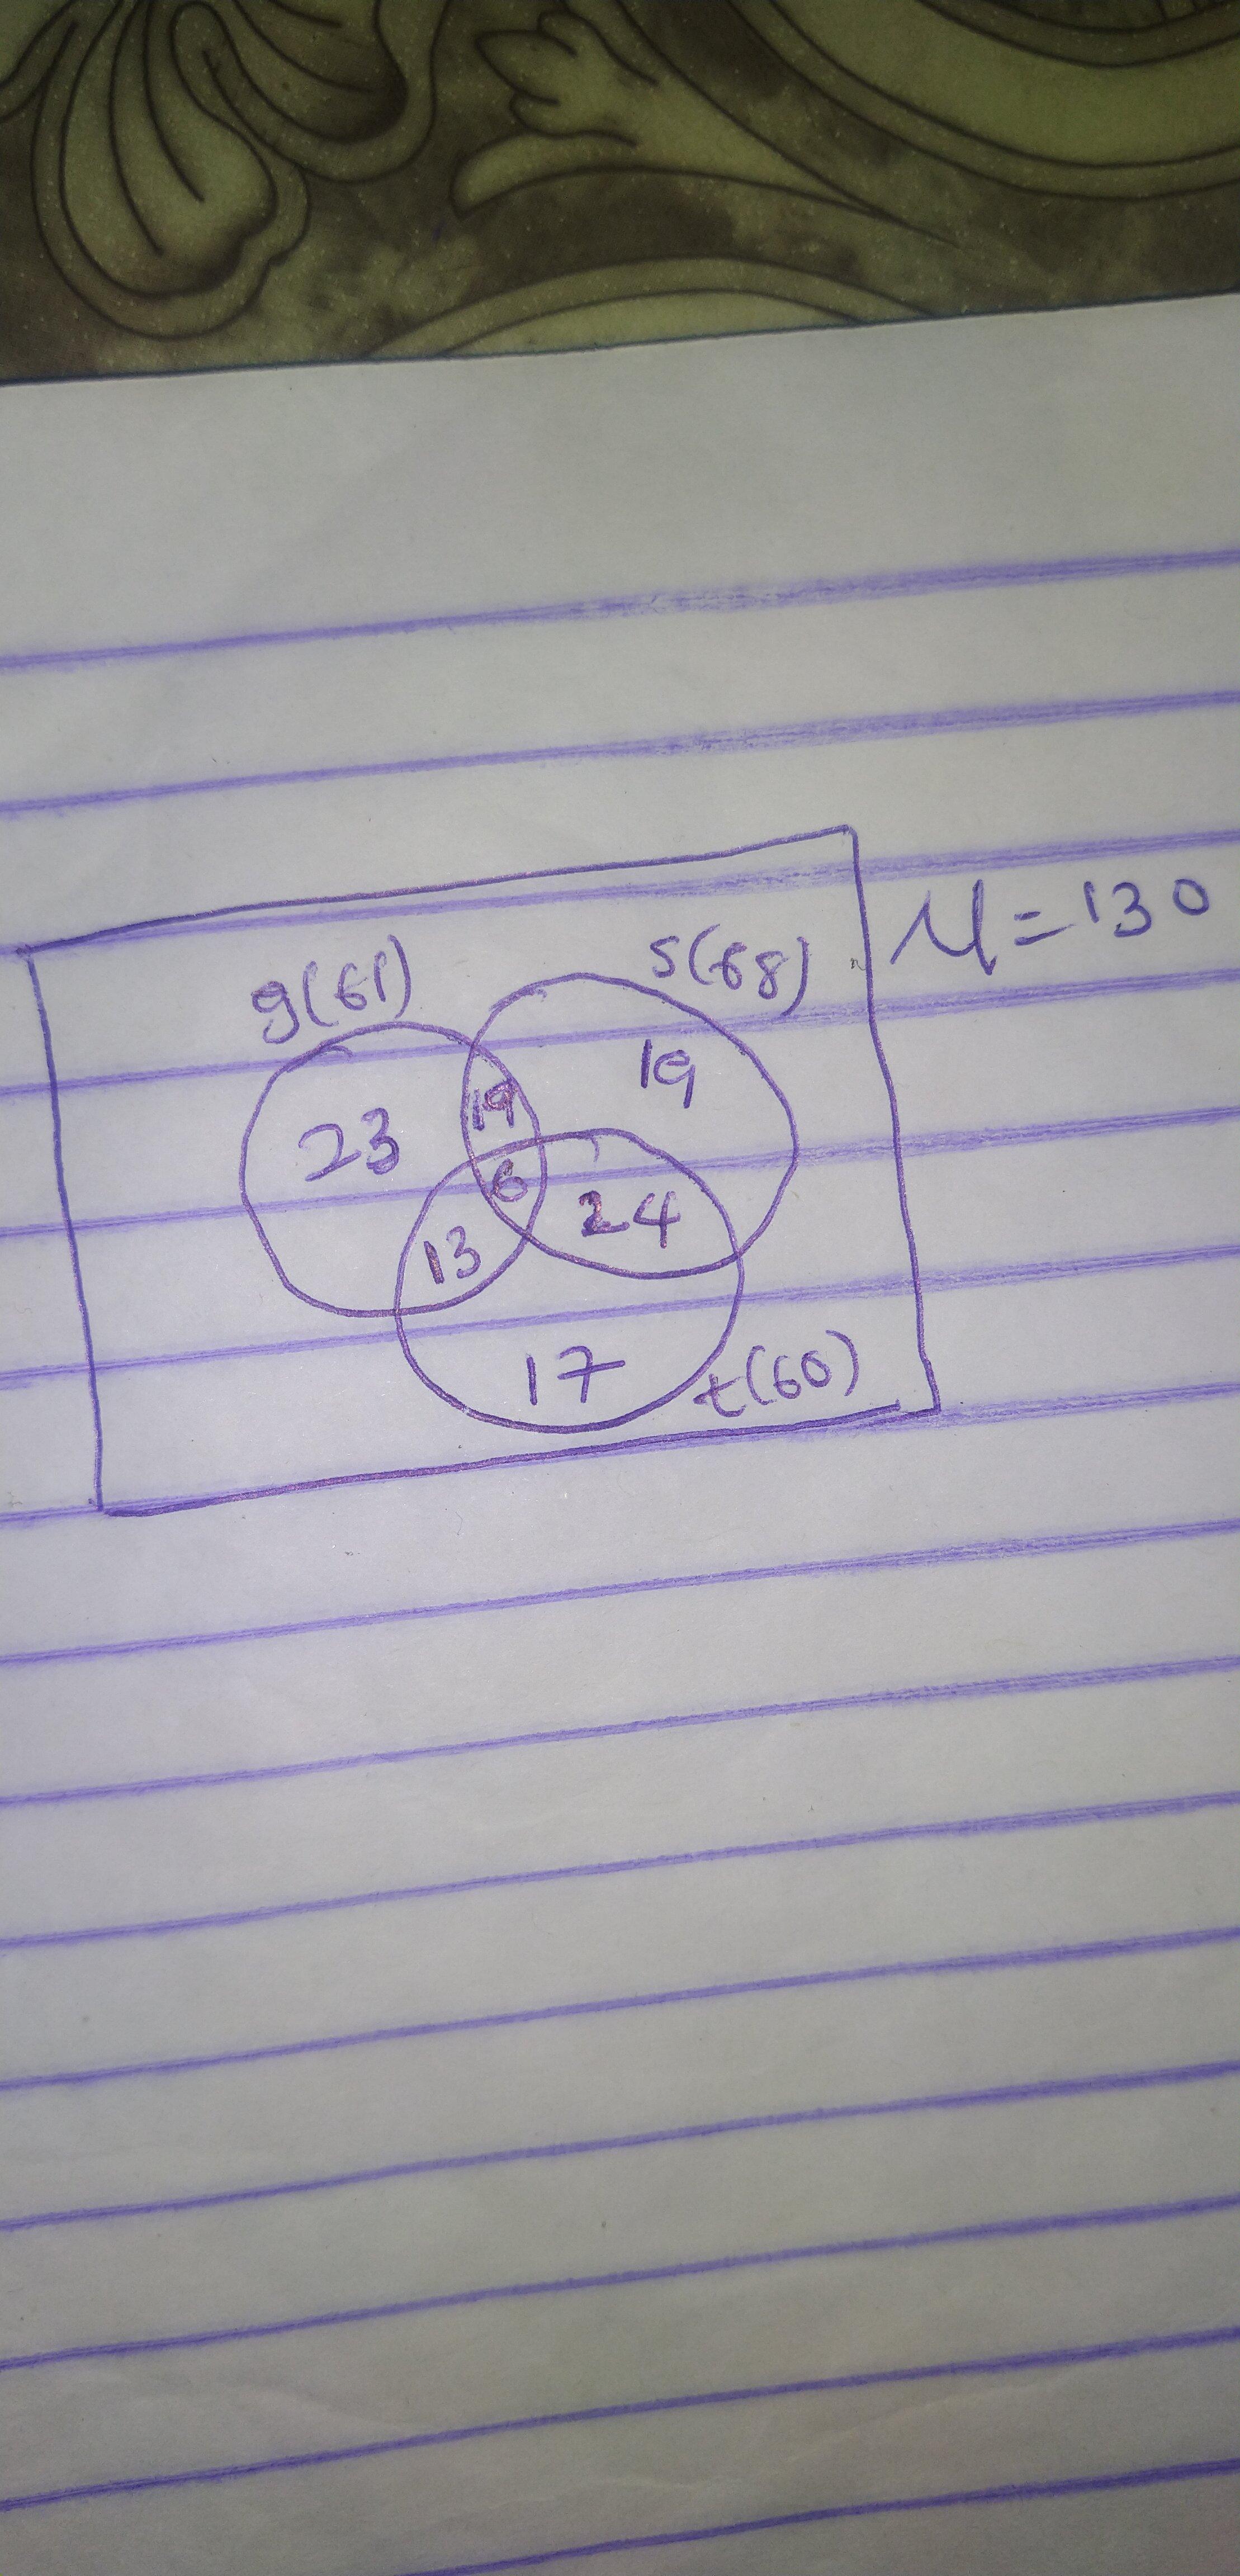 μ=130
g(61) s(68)
23 19 19
6
13 24
17 t(60)